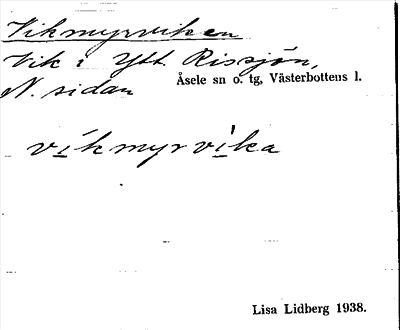 Vikmyrviken
Vik i Ytt. Rissjön,
Åsele sn o. tg, Västerbottens l.
N. sidan
víkmyrvìka
Lisa Lidberg 1938.